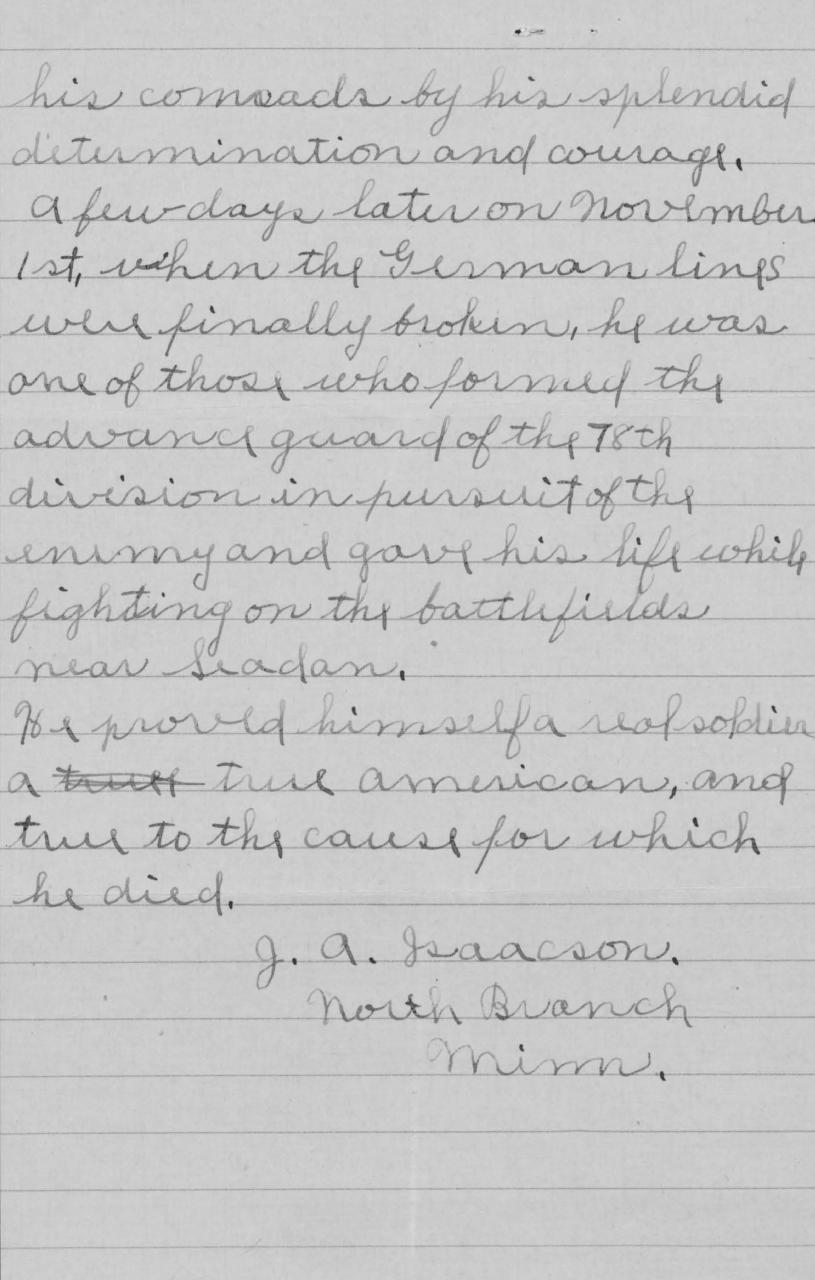 his comrads by his splendid
determination and courage.
A few days later on November
1st, when the German lines
were finally broken, he was
one of those who formed the
advance guard of the 78th
division in pursuit of the
enemy and gave his life while
fighting on the battlefields
near Seadan.
He proved himself a real soldier
a true true American, and
true to the cause for which
he died.
J. A. Isaacson.
North Branch
Minn.